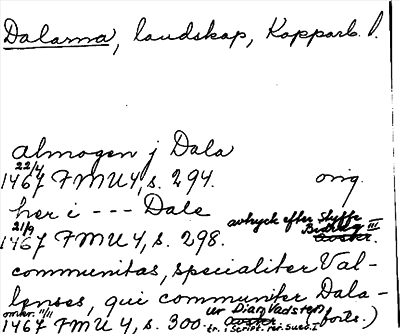 Dalarna, landskap, Kopparb. l.
almogen j Dala
22/4
1467 FMU 4, s. 294. orig.
her i --- Dale
21/9 avtryck efter Styffe
1467 FMU 4, s. 298. Bidrag III
communitas, specialiter Val-
lenses, qui communiter Dala-
omkr. 11/11 ur Diar. Vadsten.
1467 FMU 4, s. 300. (forts.)
tr. i Script. rer. Suec. I